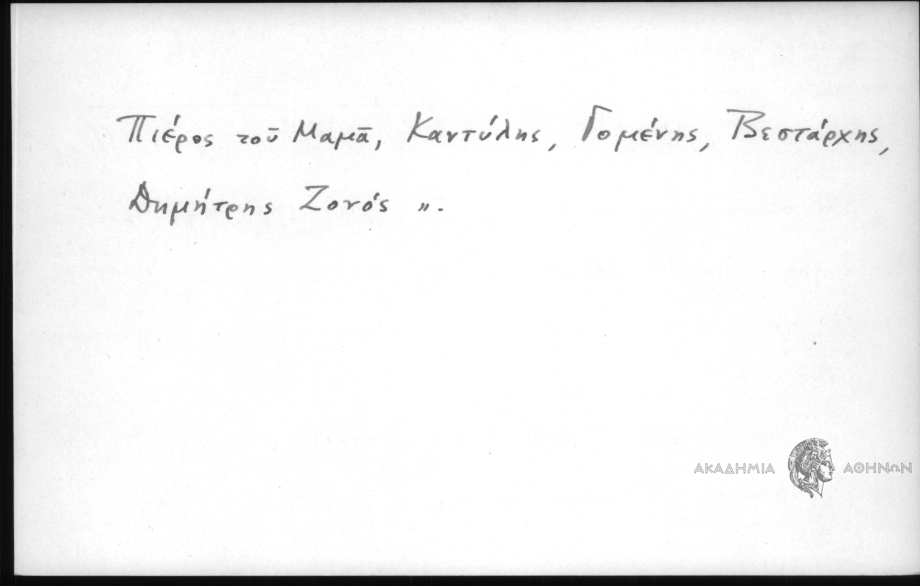 Πιέρος τοῦ Μαμᾶ, Καντύλης, Γομένης, Βεστάρχης,
Δημήτρης Ζονός ".
ΑΚΑΔΗΜΙΑ ΑΘΗΝΩΝ